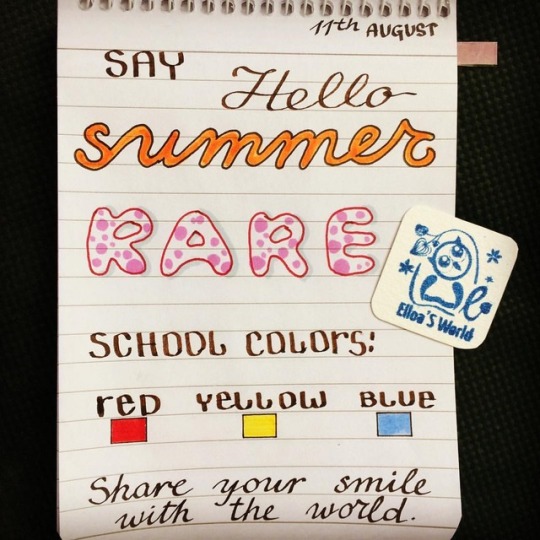 11th AUGUST
SAY Hello
summer
RARE
Elloa'S World
SCHOOL COLORS:
reD YeLLOW BLUe
Share your smile
with the world.